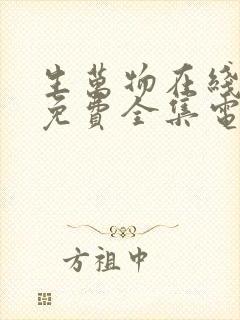 生萬物在綫
免費全集電
方祖中